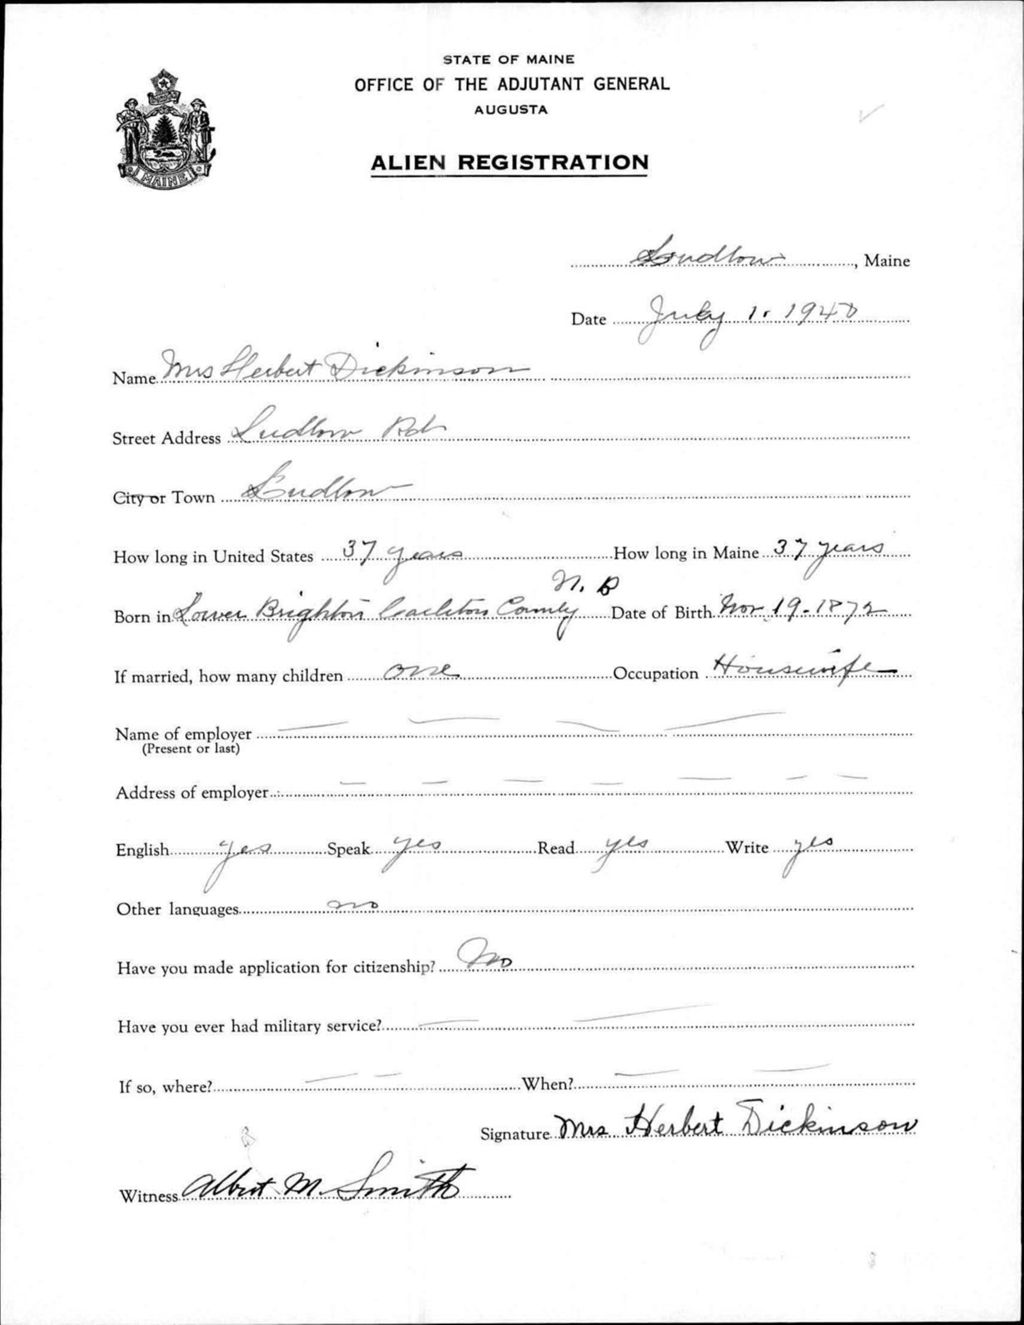 STATE OF MAINE
OFFICE OF THE ADJUTANT GENERAL
AUGUSTA
ALIEN REGISTRATION
MAINE
Ludlow, Maine
Date July 1. 1940
Name Mrs Herbert Dickinson
Street Address Ludlow Rd
City or Town Ludlow
How long in United States 37 years How long in Maine 37 years
N. B
Born in Lower Brighton Carleton County Date of Birth Nov 19-1872
If married, how many children one Occupation Housewife
Name of employer
(Present or last)
Address of employer
English yes Speak yes Read yes Write yes
Other languages no
Have you made application for citizenship? No
Have you ever had military service?
If so, where? When?
Signature Mrs Herbert Dickinson
Witness Albert M Smith